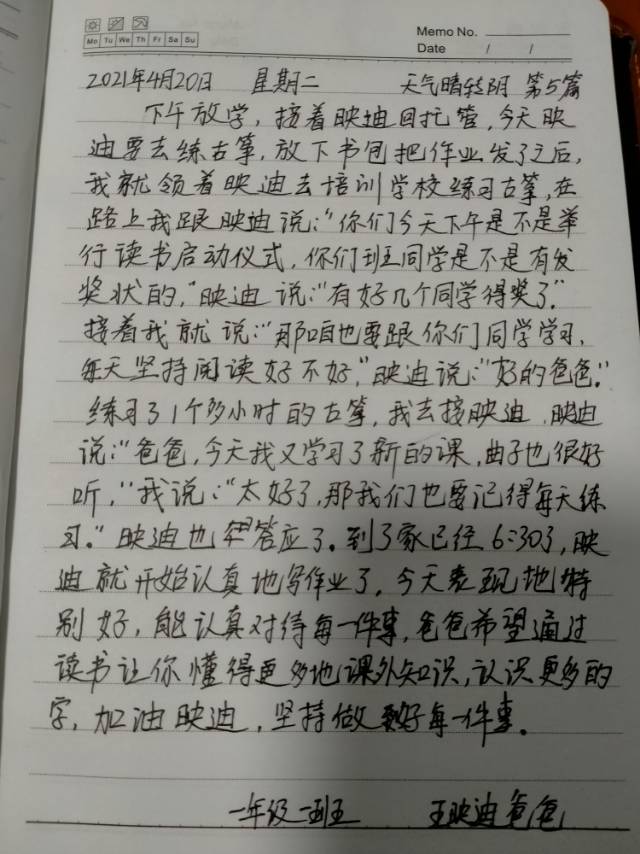 Memo No.
Mo Tu We Th Fr Sa Su
Date / /
2021年4月20日 星期二 天气晴转阴 第5篇
下午放学，接着映迪回托管，今天映
迪要去练古筝，放下书包把作业发了之后，
我就领着映迪去培训学校练习古筝，在
路上我跟映迪说：“你们今天下午是不是举
行读书启动仪式，你们班同学是不是有发
奖状的，”映迪说：“有好几个同学得奖了”
接着我就说：“那咱也要跟你们同学学习，
每天坚持阅读好不好，”映迪说：“好的爸爸。”
练习了1个多小时的古筝，我去接映迪，映迪
说：“爸爸，今天我又学习了新的课，曲子也很好
听，”我说：“太好了，那我们也要记得每天练
习。”映迪也答应了。到了家已经6:30了，映
迪就开始认真地写作业了，今天表现地特
别好，能认真对待每一件事，爸爸希望通过
读书让你懂得更多地课外知识，认识更多的
字，加油映迪，坚持做好每一件事。
一年级一班 王映迪爸爸